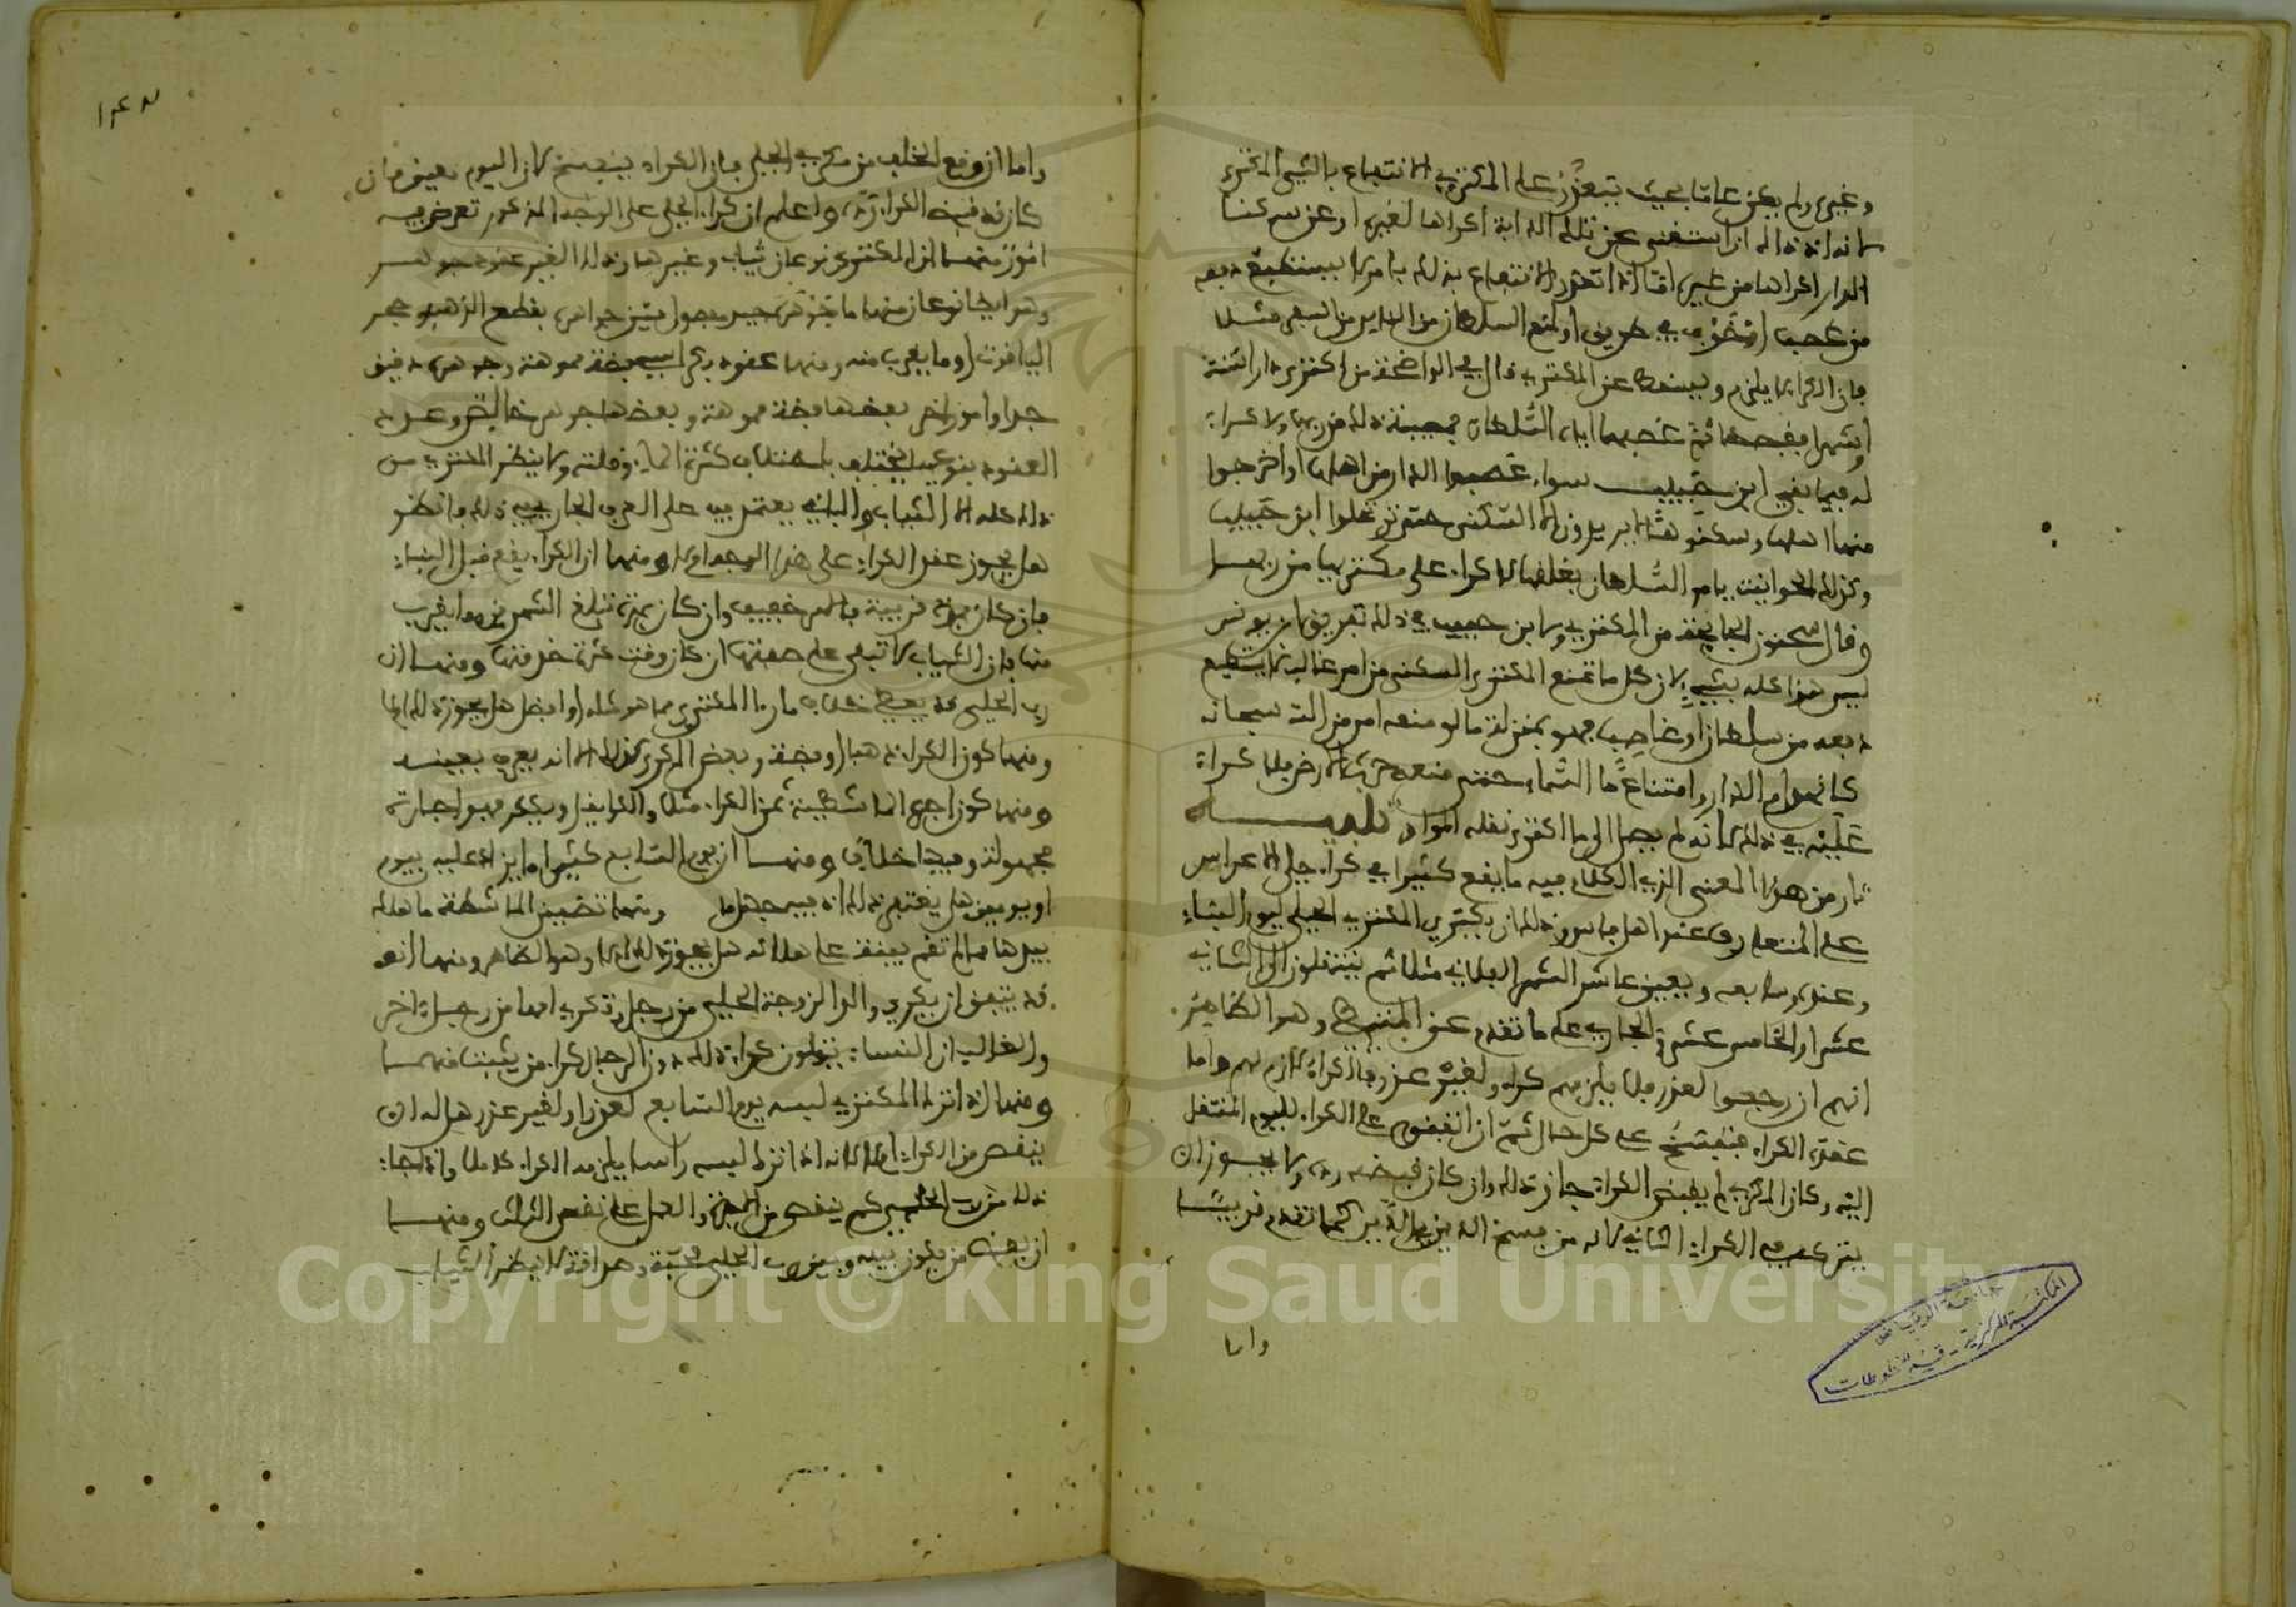 وغيره ولم يكن عاما بحيث يتعذر على المكتري الانتفاع بالشيء المكترى
لانه اذ ذاك ان استغنى عن تلك الدابة اكراها لغيره او عن سكنا
الدار اكراها من غيره اما اذا تعذر الانتفاع بذلك بامر لا يستطيع دفعه
من غصب او خوف في طريق او منع السلطان من السفر مثلا
فان الكراء لا يلزم ويسقط عن المكتري قال في الواضحة من اكترى دارا سنة
او شهرا فقبضها ثم غصبها اياه السلطان فمصيبة ذلك من ربها ولا كراء
له فيما بقي ابن حبيب سواء غصبوا الدار من اهلها او اخرجوا
منها اهلها وسكنوها لا يريدون الا السكنى حتى يرتحلوا ابن حبيب
وكذلك الحوانيت يامر السلطان بغلقها لا كراء على مكتريها من ربها
وقال سحنون الجائحة من المكتري ولابن حبيب في ذلك تفريق ابن يونس
ليس هذا كله بشيء لان كل ما منع المكتري السكنى من امر غالب لا يستطيع
دفعه من سلطان او غاصب فهو بمنزلة ما لو منعه امر من الله سبحانه
كانهدام الدار وامتناع ماء السماء حتى منعه حرث الارض فلا كراء
عليه في ذلك لانه لم يصل الى ما اكترى نقله المواق تنبيه
من هذا المعنى الذي الكلام فيه ما يقع كثيرا في كراء حلي الاعراس
على المتعارف عند اهل فاس وذلك ان يكتري المكتري الحلي ليوم البناء
وغده وسابعه ويعين عاشر الشهر الفلاني مثلا ثم ينتقلون الى الثاني
عشر او الخامس عشر الجاري على ما تقدم عن المتيطي وهو الظاهر
انهم ان رجعوا لعذر فلا يلزمهم كراء ولغير عذر فالكراء لازم لهم واما
عقدة الكراء فتنفسخ على كل حال ثم ان اتفقوا على الكراء لليوم المنتقل
اليه وكان المكري لم يقبض الكراء جاز ذلك وان كان قبضه رده ولا يجوز ان
يتركه في الكراء الثاني لانه من فسخ الدين في الدين كما تقدم قريبا
واما
واما ان وقع الخلف من مكري الحلي فان الكراء ينفسخ لان اليوم معين فان
كان قبض الكراء رده واعلم ان كراء الحلي على الوجه المذكور تعرض فيه
امور منها ان المكترى نوعان ثياب وغيرها وذلك الغير عقود جوهر
وهو ايضا نوعان منها ما جوهره حب مفصول بين حباته بقطع الذهب وحجر
الياقوت او ما يقرب منه ومنها عقود بكراسي فضة مموهة وجوهره دقيق
جدا وامور اخر بعضها فضة مموهة وبعضها جوهر خالص وعدد
العقود بنوعيه يختلف باختلاف كثرة المال وقلته ولا ينظر المكتري من
ذلك كله الا الثياب والباقي يعتمد فيه على العرف الجاري في ذلك فانظر
هل يجوز عقد الكراء على هذا الوجه ام لا ومنها ان الكراء يقع قبل البناء
فان كان بمدة قريبة فالامر خفيف وان كان بمدة تبلغ الشهرين وما يقرب
منها فان الثياب لا تبقى على صفتها ان كان وقت كثرة خدمتها ومنها ان
رب الحلي قد يعطي خلاف ما راه المكتري مما هو مثله او افضل هل يجوز ذلك ام لا
ومنها كون الكراء ذهبا او فضة وبعض المكرى كذلك الا انه يعرف بعينه
ومنها كون اجرة الماشطة من الكراء مثلا والكراء فهو اجارة
مجهولة وفيها خلاف ومنها ان يوم السابع كثيرا ما يزاد عليه بيوم
او يومين هل يغتفر ذلك اذ فيه جهل ومنها تضمين الماشطة ما هلك
بيدها مما لم تقم بينة على هلاكه هل يجوز ذلك ام لا وهو الظاهر ومنها انه
قد يتفق ان يكري والد الزوجة الحلي من رجل وتكري امها من رجل اخر
والغالب ان النساء يتولون كراء ذلك دون الرجال فكراء من يثبت منهما
ومنها اذا ترك المكتري لبسه يوم السابع لعذر او لغير عذر هل له ان
ينقص من الكراء ام لا لانه اذا ترك لبسه راسا يلزمه الكراء كاملا واذا جاء
ذلك من رب الحلي كم ينقص من الكراء والعمل على نقص الثلث ومنها
ان بعض من يكون بينه وبين رب الحلي محبة وصداقة لا ينظر الثياب